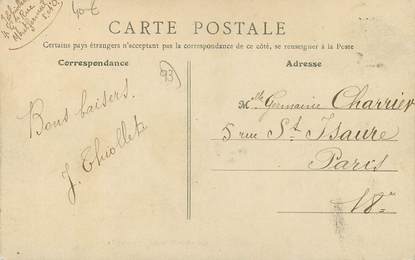 40 €
CARTE POSTALE
Certains pays étrangers n'acceptant pas la correspondance de ce côté, se renseigner à la Poste
Correspondance
93
Bons baisers.
J. Thiollet
Adresse
M^lle Germaine Charrier
5 rue St Isaure
Paris
18e